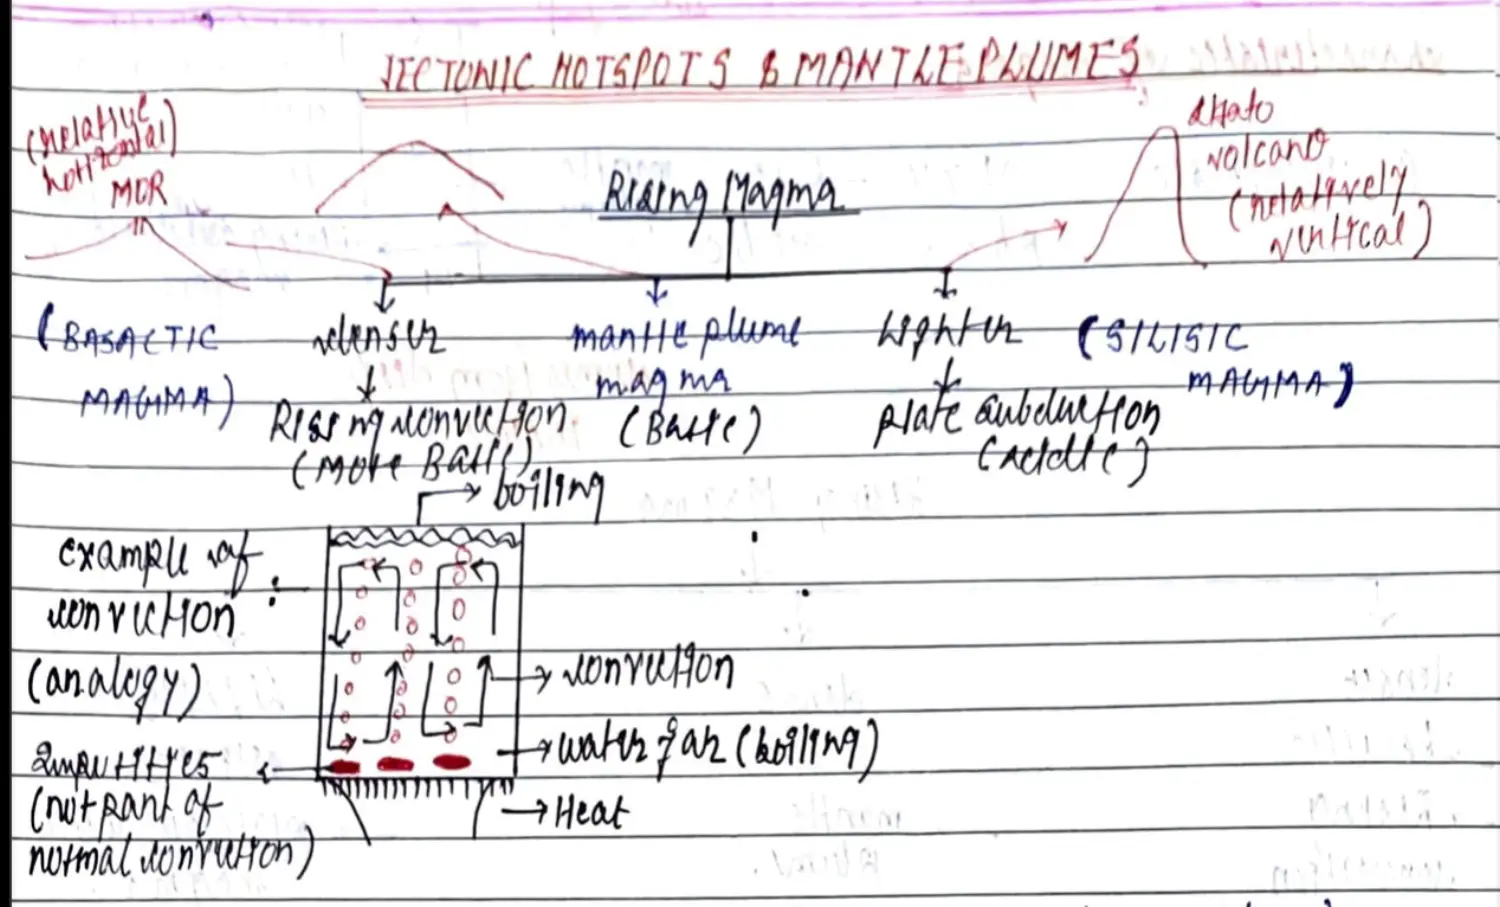 TECTONIC HOTSPOTS & MANTLE PLUMES
(relative
horizontal)
MOR
Rising Magma
strato
volcano
(relatively
vertical)
(BASALTIC
MAGMA)
denser
Rising convection
(more Basic)
mantle plume
magma
(Basic)
Lighter
plate subduction
(acidic)
(SILISIC
MAGMA)
boiling
example of
convection :
(analogy)
convection
water jar (boiling)
Impurities
(not part of
normal convection)
Heat